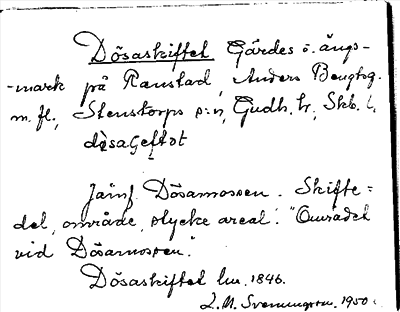 Dösaskiftet Gärdes o. ängs-
-mark på Ranstad, Anders Bengtsg.
m. fl., Stenstorps s:n, Gudh. h., Skb. l.
Jämf Dösamossen. Skifte =
del, område, stycke areal. "Området
vid Dösamossen."
Dösaskiftet lm. 1846.
L. M. Svenungsson. 1950.